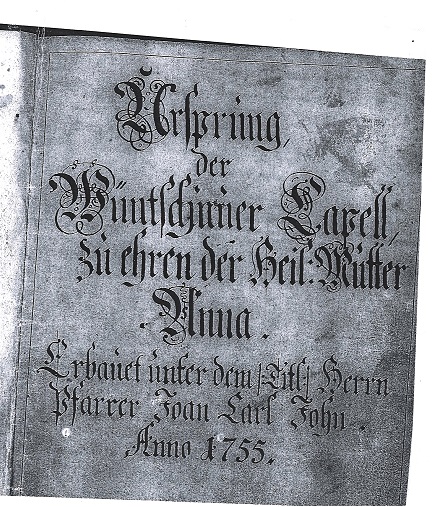 Ursprung,
der
Wüntschiner Capell,
zu ehren der Heil: Mutter
Anna.
Erbauet unter dem /:Titl:/ Herrn
Pfarrer Joan Carl John.
Anno 1755.